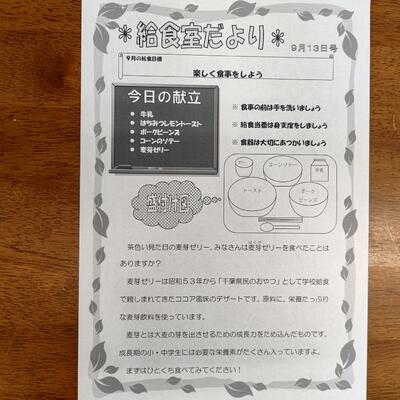 ＊給食室だより＊
9月13日号
9月の給食目標
楽しく食事をしよう
今日の献立
● 牛乳
● はちみつレモントースト
● ポークビーンズ
● コーンのソテー
● 麦芽ゼリー
※ 食事の前は手を洗いましょう
※ 給食当番は身支度をしましょう
※ 食器は大切にあつかいましょう
盛付け図
ゼリー
コーンソテー
牛乳
トースト
ポーク
ビーンズ
茶色い見た目の麦芽ゼリー。みなさんは麦芽ゼリーを食べたことは
ありますか？
麦芽ゼリーは昭和53年から「千葉県民のおやつ」として学校給食
で親しまれてきたココア風味のデザートです。原料に、栄養たっぷり
な麦芽飲料を使っています。
麦芽とは大麦の芽を出させるための成長力をため込んだものです。
成長期の小・中学生には必要な栄養素がたくさん入っていますよ。
まずはひとくち食べてみてください！